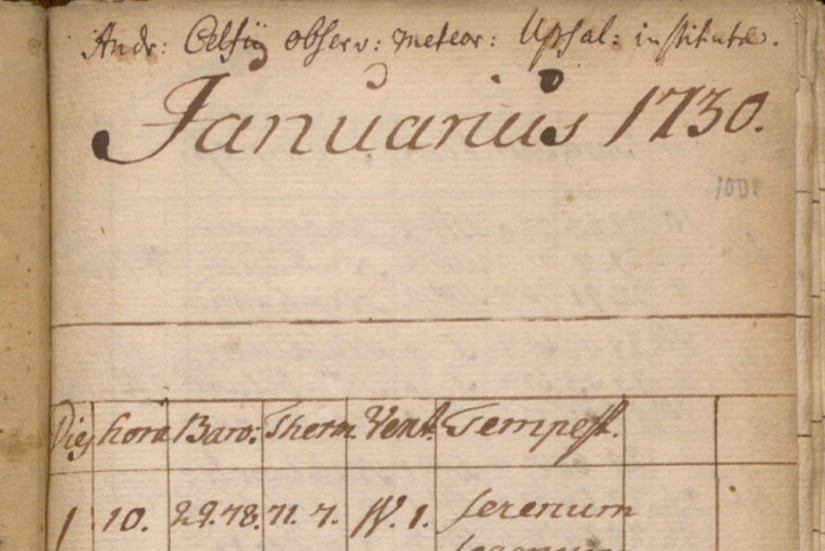 Andr: Celsij observ: meteor: Upsal: institutæ.
Januarius 1730.
100.
Dies hora Baro: Therm. Vent. Tempest.
1 10. 29.78. 71. 7. W. 1. serenum